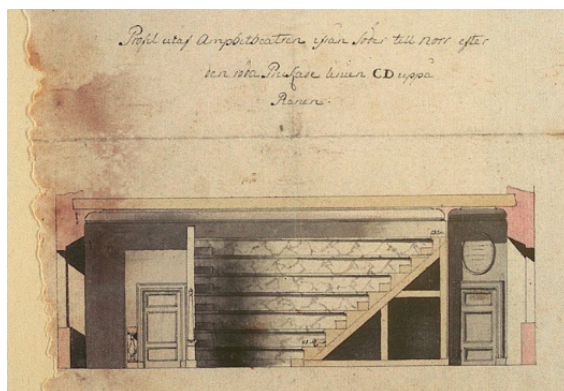 Profil utaf Amphitheatren ifrån söder till norr efter
den röda Punktade linien CD uppå
Planen.